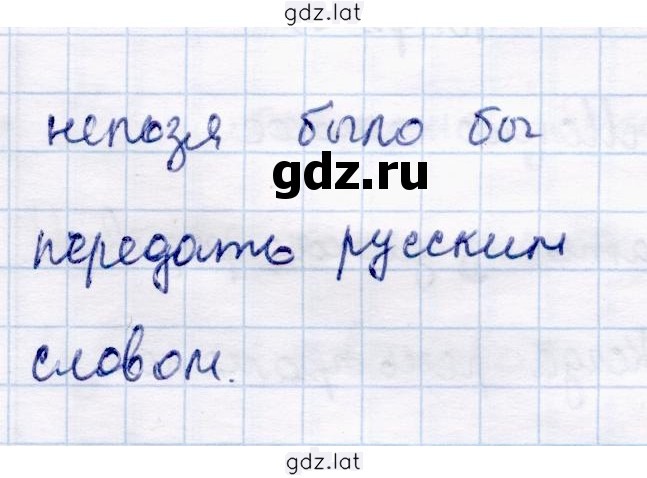 gdz.lat
нельзя было бы
gdz.ru
передать русским
словом.
gdz.lat